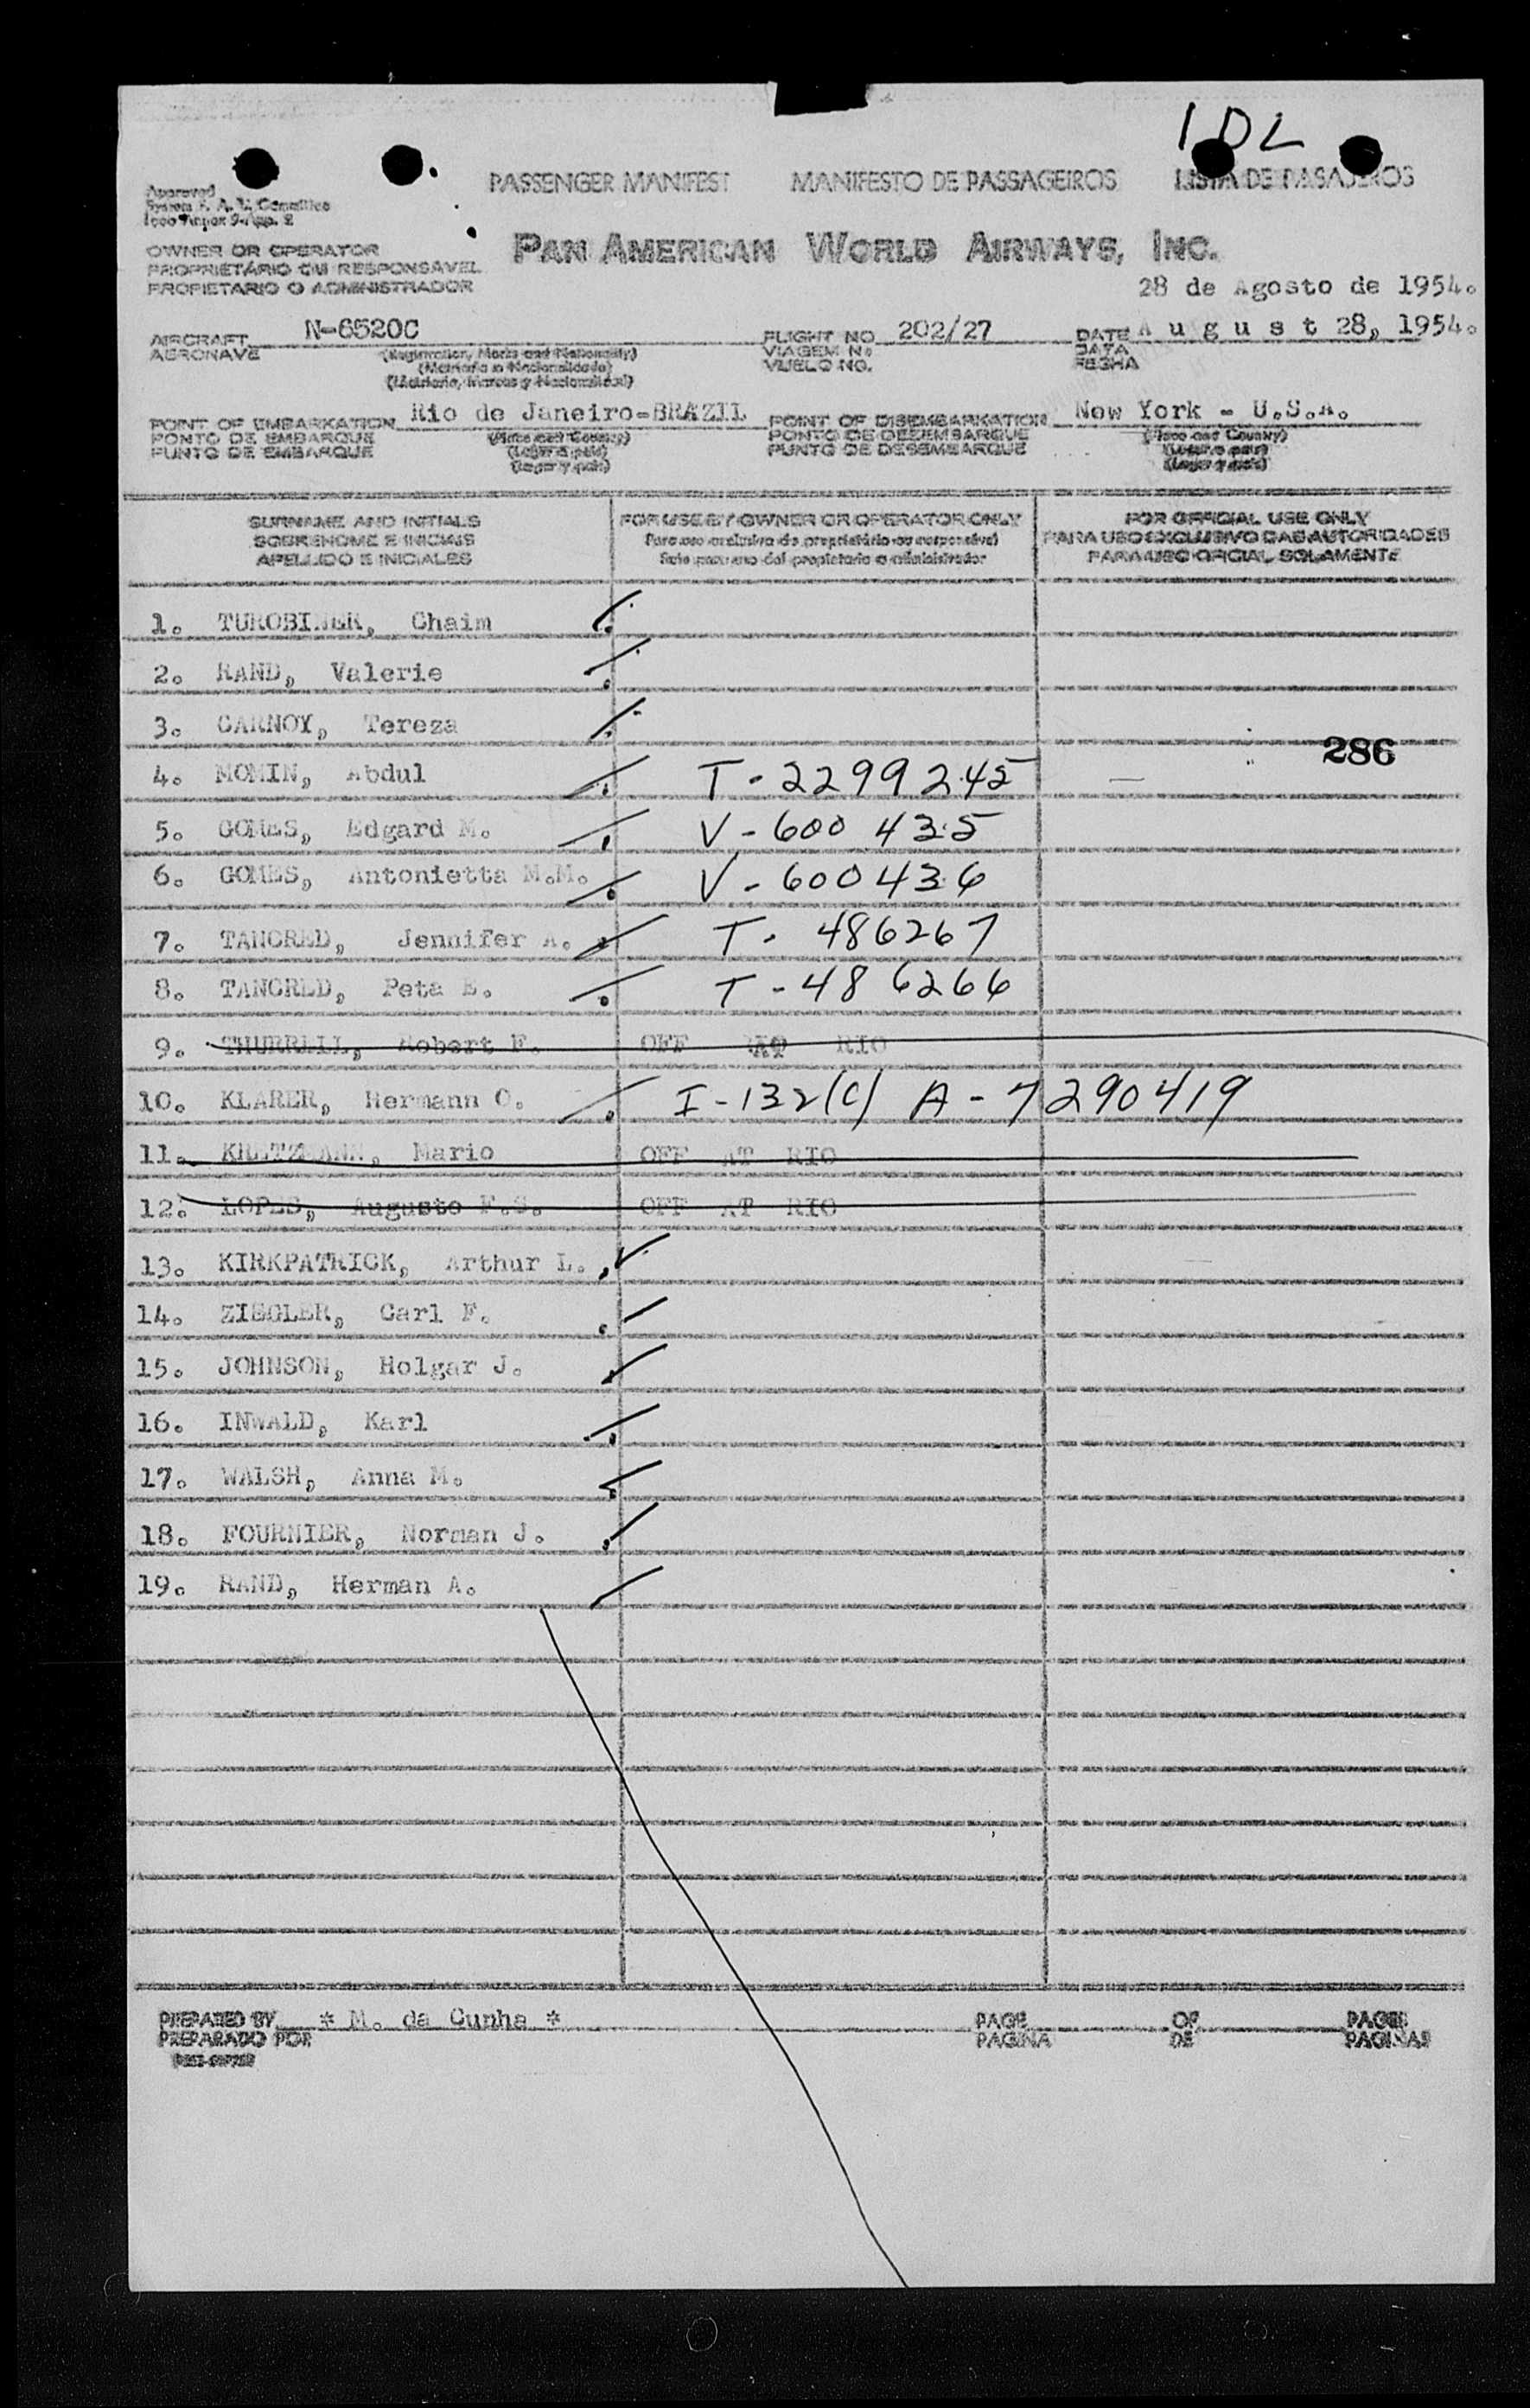 IDL
PASSENGER MANIFEST MANIFESTO DE PASSAGEIROS LISTA DE PASAJEROS
Approved
PAN AMERICAN WORLD AIRWAYS, INC.
OWNER OR OPERATOR
PROPRIETÁRIO OU RESPONSAVEL
PROPIETARIO O ADMINISTRADOR
28 de Agosto de 1954.
AIRCRAFT N-6520C FLIGHT NO 202/27 DATE A u g u s t 28, 1954.
AERONAVE VIAGEM No DATA
VUELO NO. FECHA
(Registration, Marks and Nationality)
(Matricula e Nacionalidade)
(Matricula, Marcas y Nacionalidad)
POINT OF EMBARKATION Rio de Janeiro-BRAZIL POINT OF DISEMBARKATION New York - U.S.A.
PONTO DE EMBARQUE (Place and Country) PONTO DE DESEMBARQUE (Place and Country)
PUNTO DE EMBARQUE (Lugar e pais) PUNTO DE DESEMBARQUE (Lugar e pais)
(Lugar y pais) (Lugar y pais)
SURNAME AND INITIALS FOR USE BY OWNER OR OPERATOR ONLY FOR OFFICIAL USE ONLY
SOBRENOME E INICIAIS Para uso exclusivo do proprietário ou responsável PARA USO EXCLUSIVO DAS AUTORIDADES
APELLIDO E INICIALES Solo para uso del propietario o administrador PARA USO OFICIAL SOLAMENTE
1. TUROBINER, Chaim
2. RAND, Valerie
3. CARNOY, Tereza
286
4. MOMIN, Abdul T-2299245
5. GOMES, Edgard M. V-600435
6. GOMES, Antonietta M.M. V-600436
7. TANCRED, Jennifer A. T-486267
8. TANCRED, Peta E. T-486266
9. THURRELL, Robert F. OFF AT RIO
10. KLARER, Hermann O. I-132(C) A-7290419
11. KRETZMANN, Mario OFF AT RIO
12. LOPES, Augusto F.S. OFF AT RIO
13. KIRKPATRICK, Arthur L.
14. ZIEGLER, Carl F.
15. JOHNSON, Holgar J.
16. INWALD, Karl
17. WALSH, Anna M.
18. FOURNIER, Norman J.
19. RAND, Herman A.
PREPARED BY * M. da Cunha * PAGE OF PAGES
PREPARADO POR PAGINA DE PAGINAS